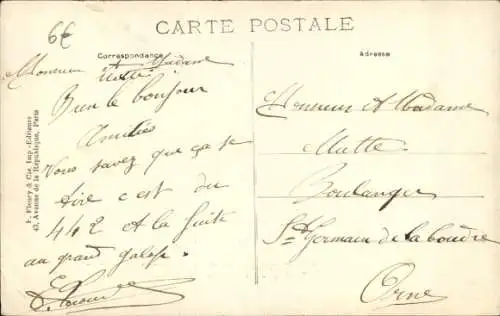 6€
CARTE POSTALE
Correspondance
Adresse
F. Fleury & Cie, Imp.-Editeurs
43, Avenue de la République, Paris
Monsieur et Madame
Mutte
Bien le bonjour
Amitiés
Vous savez que ça se
tire c'est du
442 et la fuite
au grand galop.
Monsieur et Madame
Mutte
Boulanger
St Germain de la Coudre
Orne